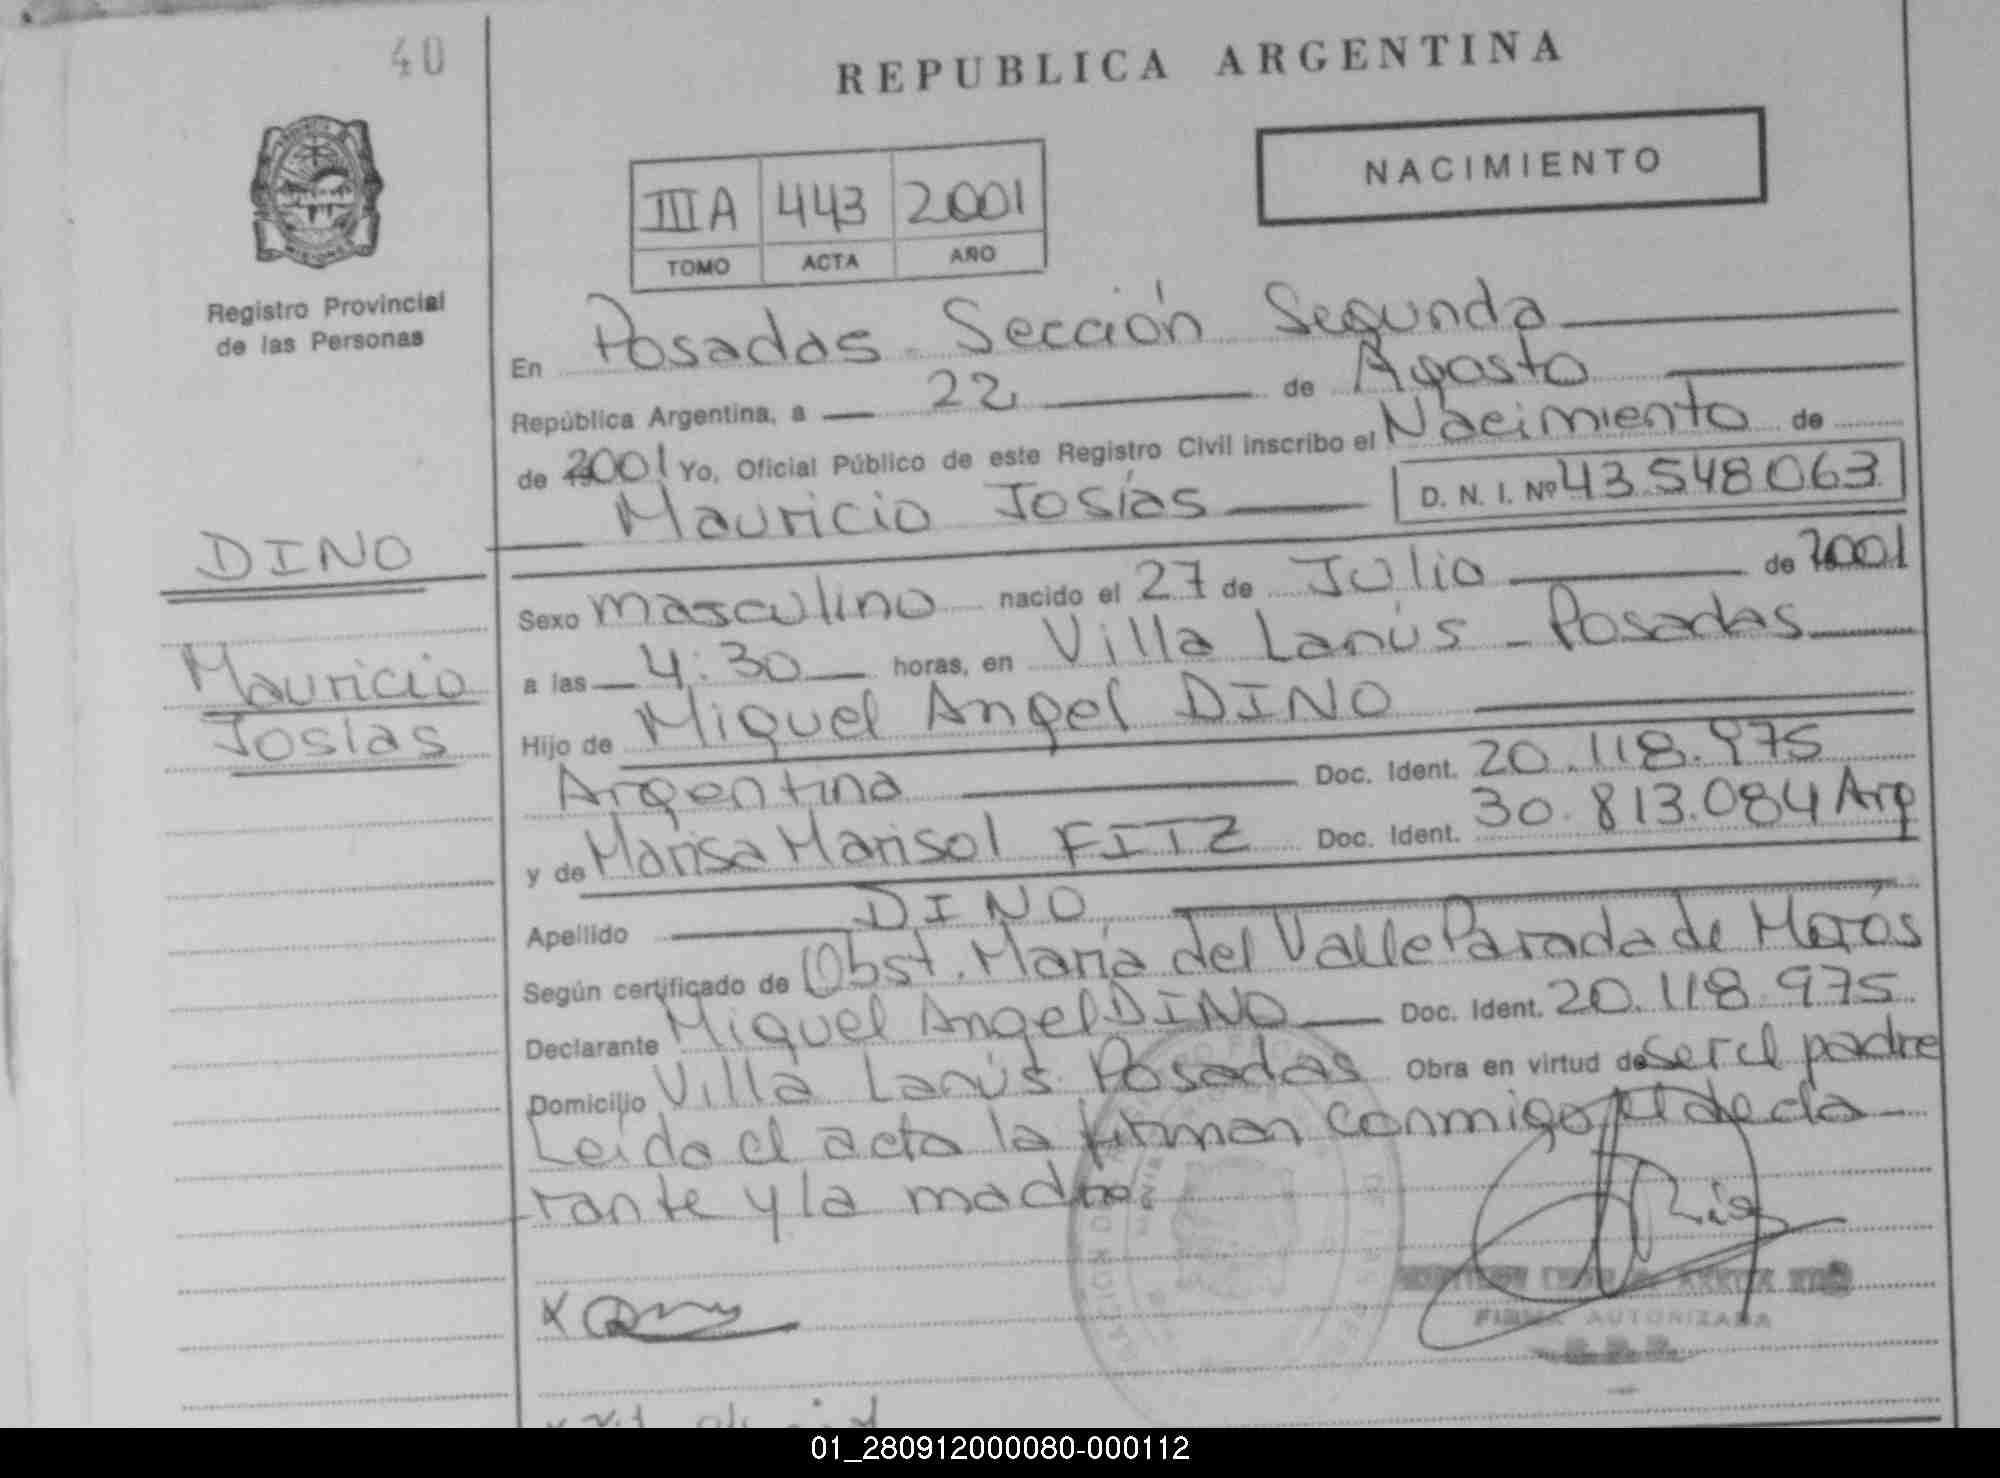 40
REPUBLICA ARGENTINA
NACIMIENTO
IIIA 443 2001
TOMO ACTA AÑO
Registro Provincial
de las Personas
En Posadas Sección Segunda
República Argentina, a 22 de Agosto
de 2001 Yo, Oficial Público de este Registro Civil inscribo el Nacimiento de
Mauricio Josías D. N. I. Nº 43.548.063
DINO
Mauricio
Josías
Sexo masculino nacido el 27 de Julio de 2001
a las 4:30 horas, en Villa Lanús - Posadas
Hijo de Miguel Angel DINO
Argentina Doc. Ident. 20.118.975
y de Marisa Marisol FITZ Doc. Ident. 30.813.084 Arg
Apellido DINO
Según certificado de Obst. María del Valle Parada de
Declarante Miguel Angel DINO Doc. Ident. 20.118.975
Domicilio Villa Lanús Posadas Obra en virtud de ser el padre
Leída el acta la firman conmigo el decla
rante y la madre.
FIRMA AUTORIZADA
01_280912000080-000112